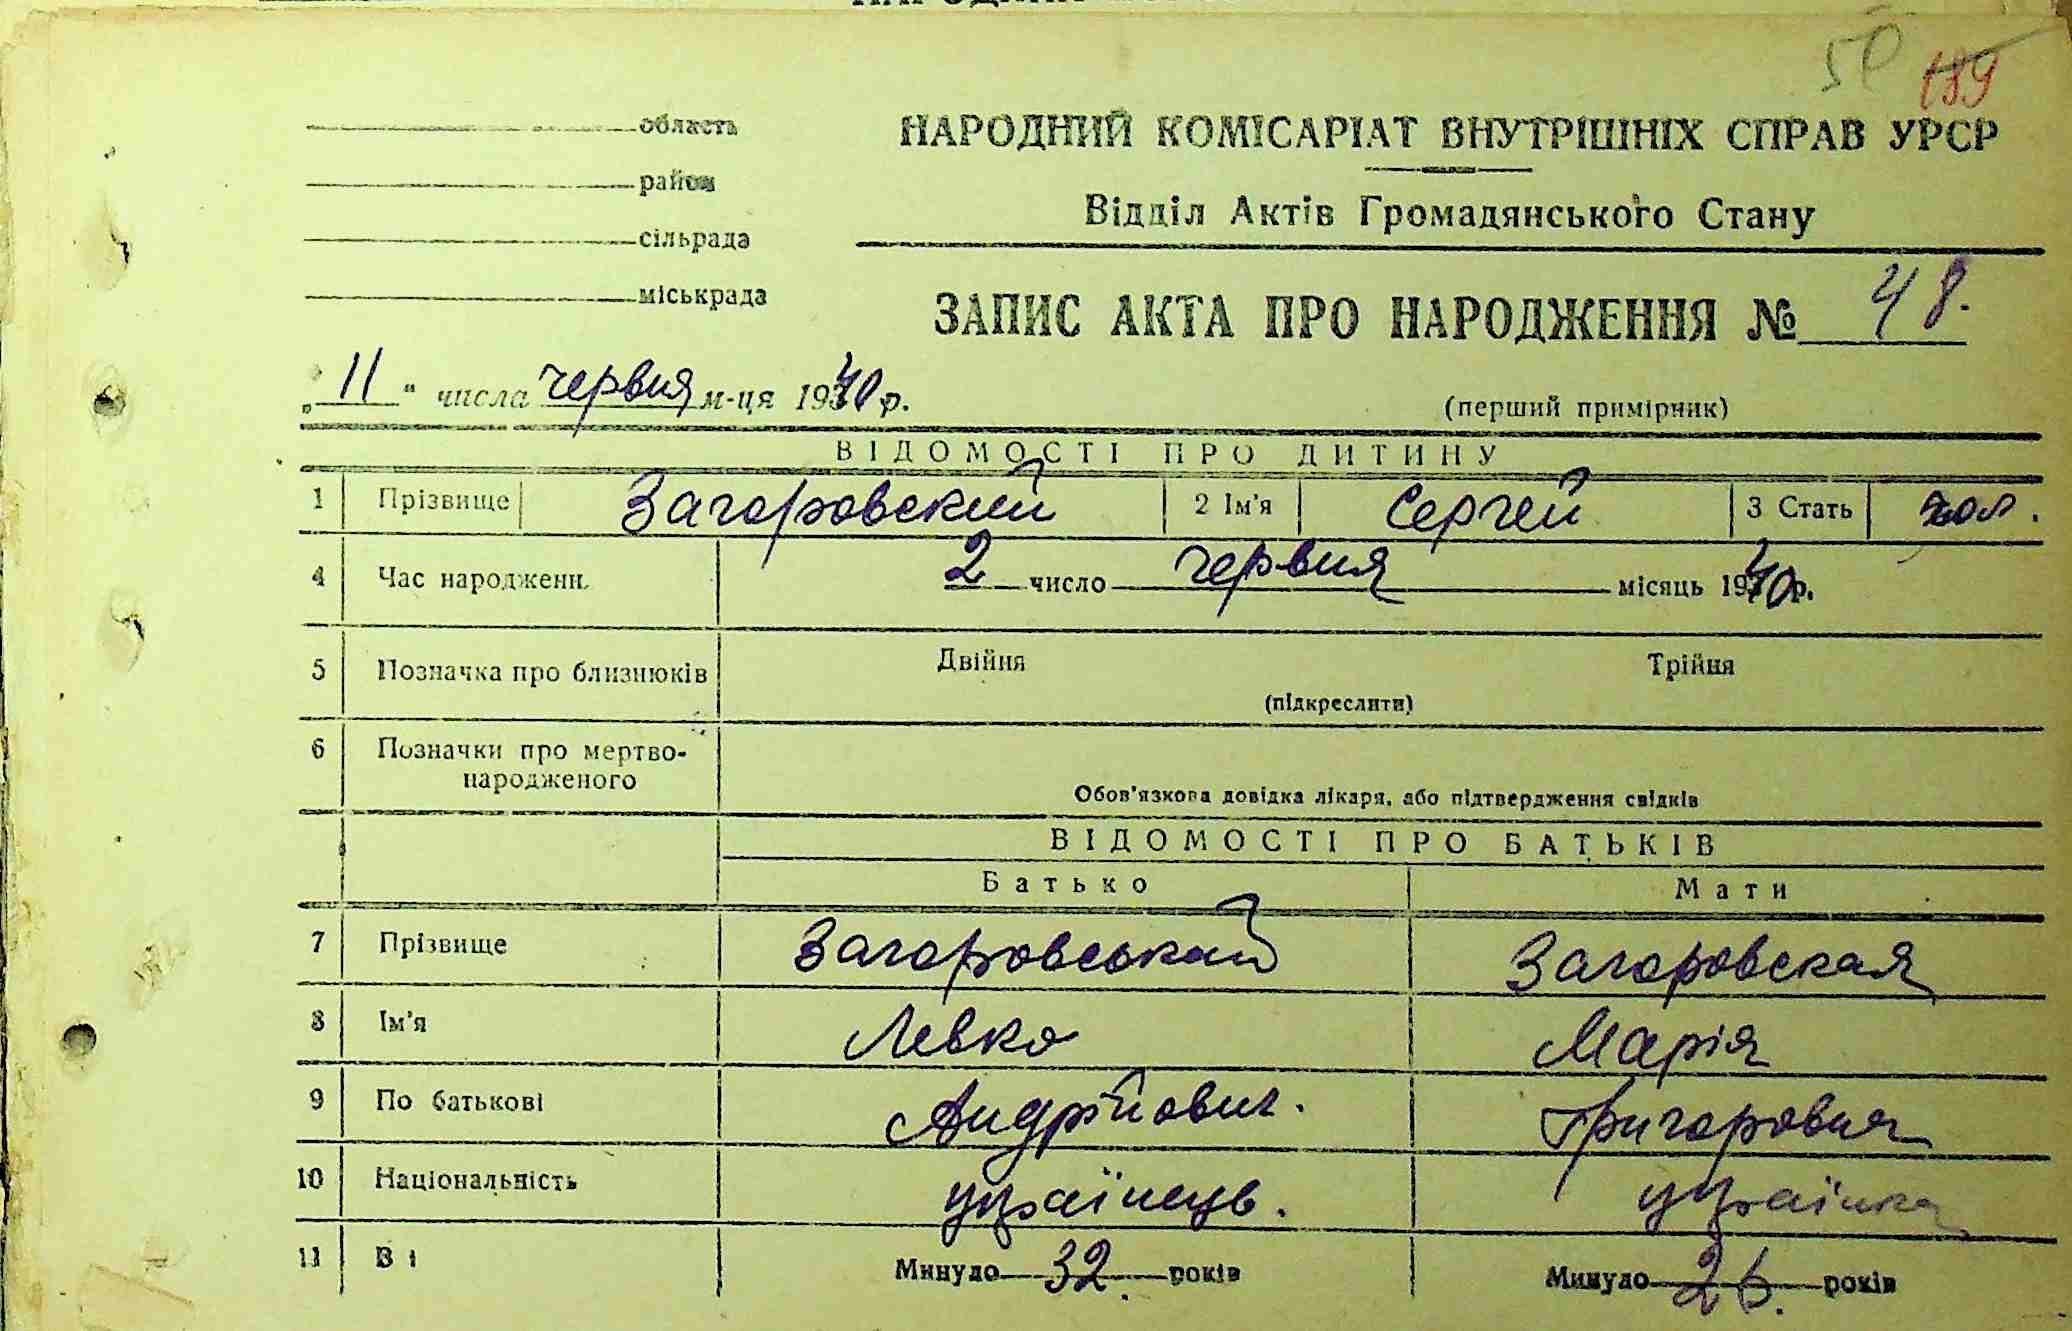 50 189
область
район
сільрада
міськрада
НАРОДНИЙ КОМІСАРІАТ ВНУТРІШНІХ СПРАВ УРСР
Відділ Актів Громадянського Стану
ЗАПИС АКТА ПРО НАРОДЖЕННЯ № 48.
„ 11 “ числа червня м-ця 1940 р.
(перший примірник)
ВІДОМОСТІ ПРО ДИТИНУ
1 Прізвище Загоровский 2 Ім'я Сергей 3 Стать чол.
4 Час народженн. 2 число червня місяць 1940 р.
5 Позначка про близнюків Двійня Трійня
(підкреслити)
6 Позначки про мертво-
народженого
Обов'язкова довідка лікаря, або підтвердження свідків
ВІДОМОСТІ ПРО БАТЬКІВ
Батько Мати
7 Прізвище Загоровський Загоровская
8 Ім'я Левко Марія
9 По батькові Андрійович. Григоровна
10 Національність українець. українка
11 В і Минуло 32. років Минуло 26. років